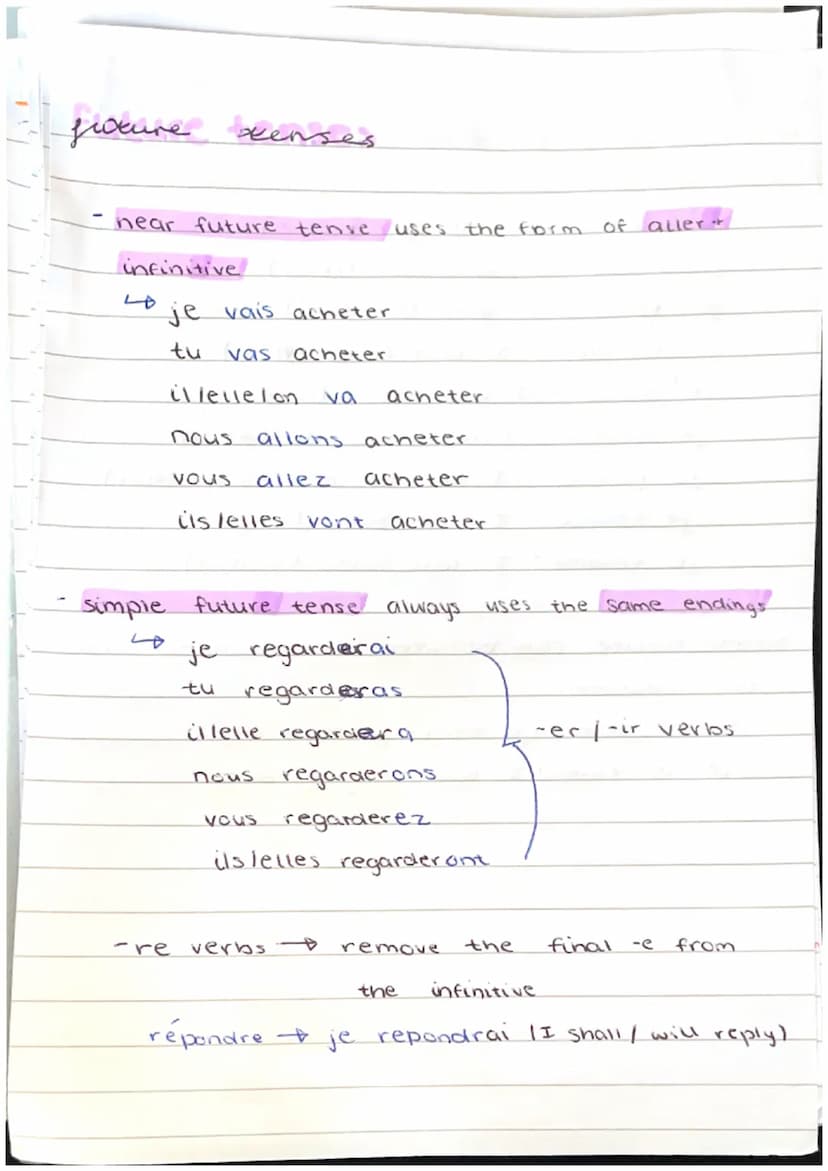 future tenses
- near future tense uses the form of aller +
infinitive
↳ je vais acheter
tu vas acheter
il/elle/on va acheter
nous allons acheter
vous allez acheter
ils/elles vont acheter
- simple future tense always uses the same endings
↳ je regarderai
tu regarderas
il/elle regardera
nous regarderons
-er/-ir verbs
vous regarderez
ils/elles regarderont
-re verbs → remove the final -e from
the infinitive
répondre → je repondrai (I shall/will reply)